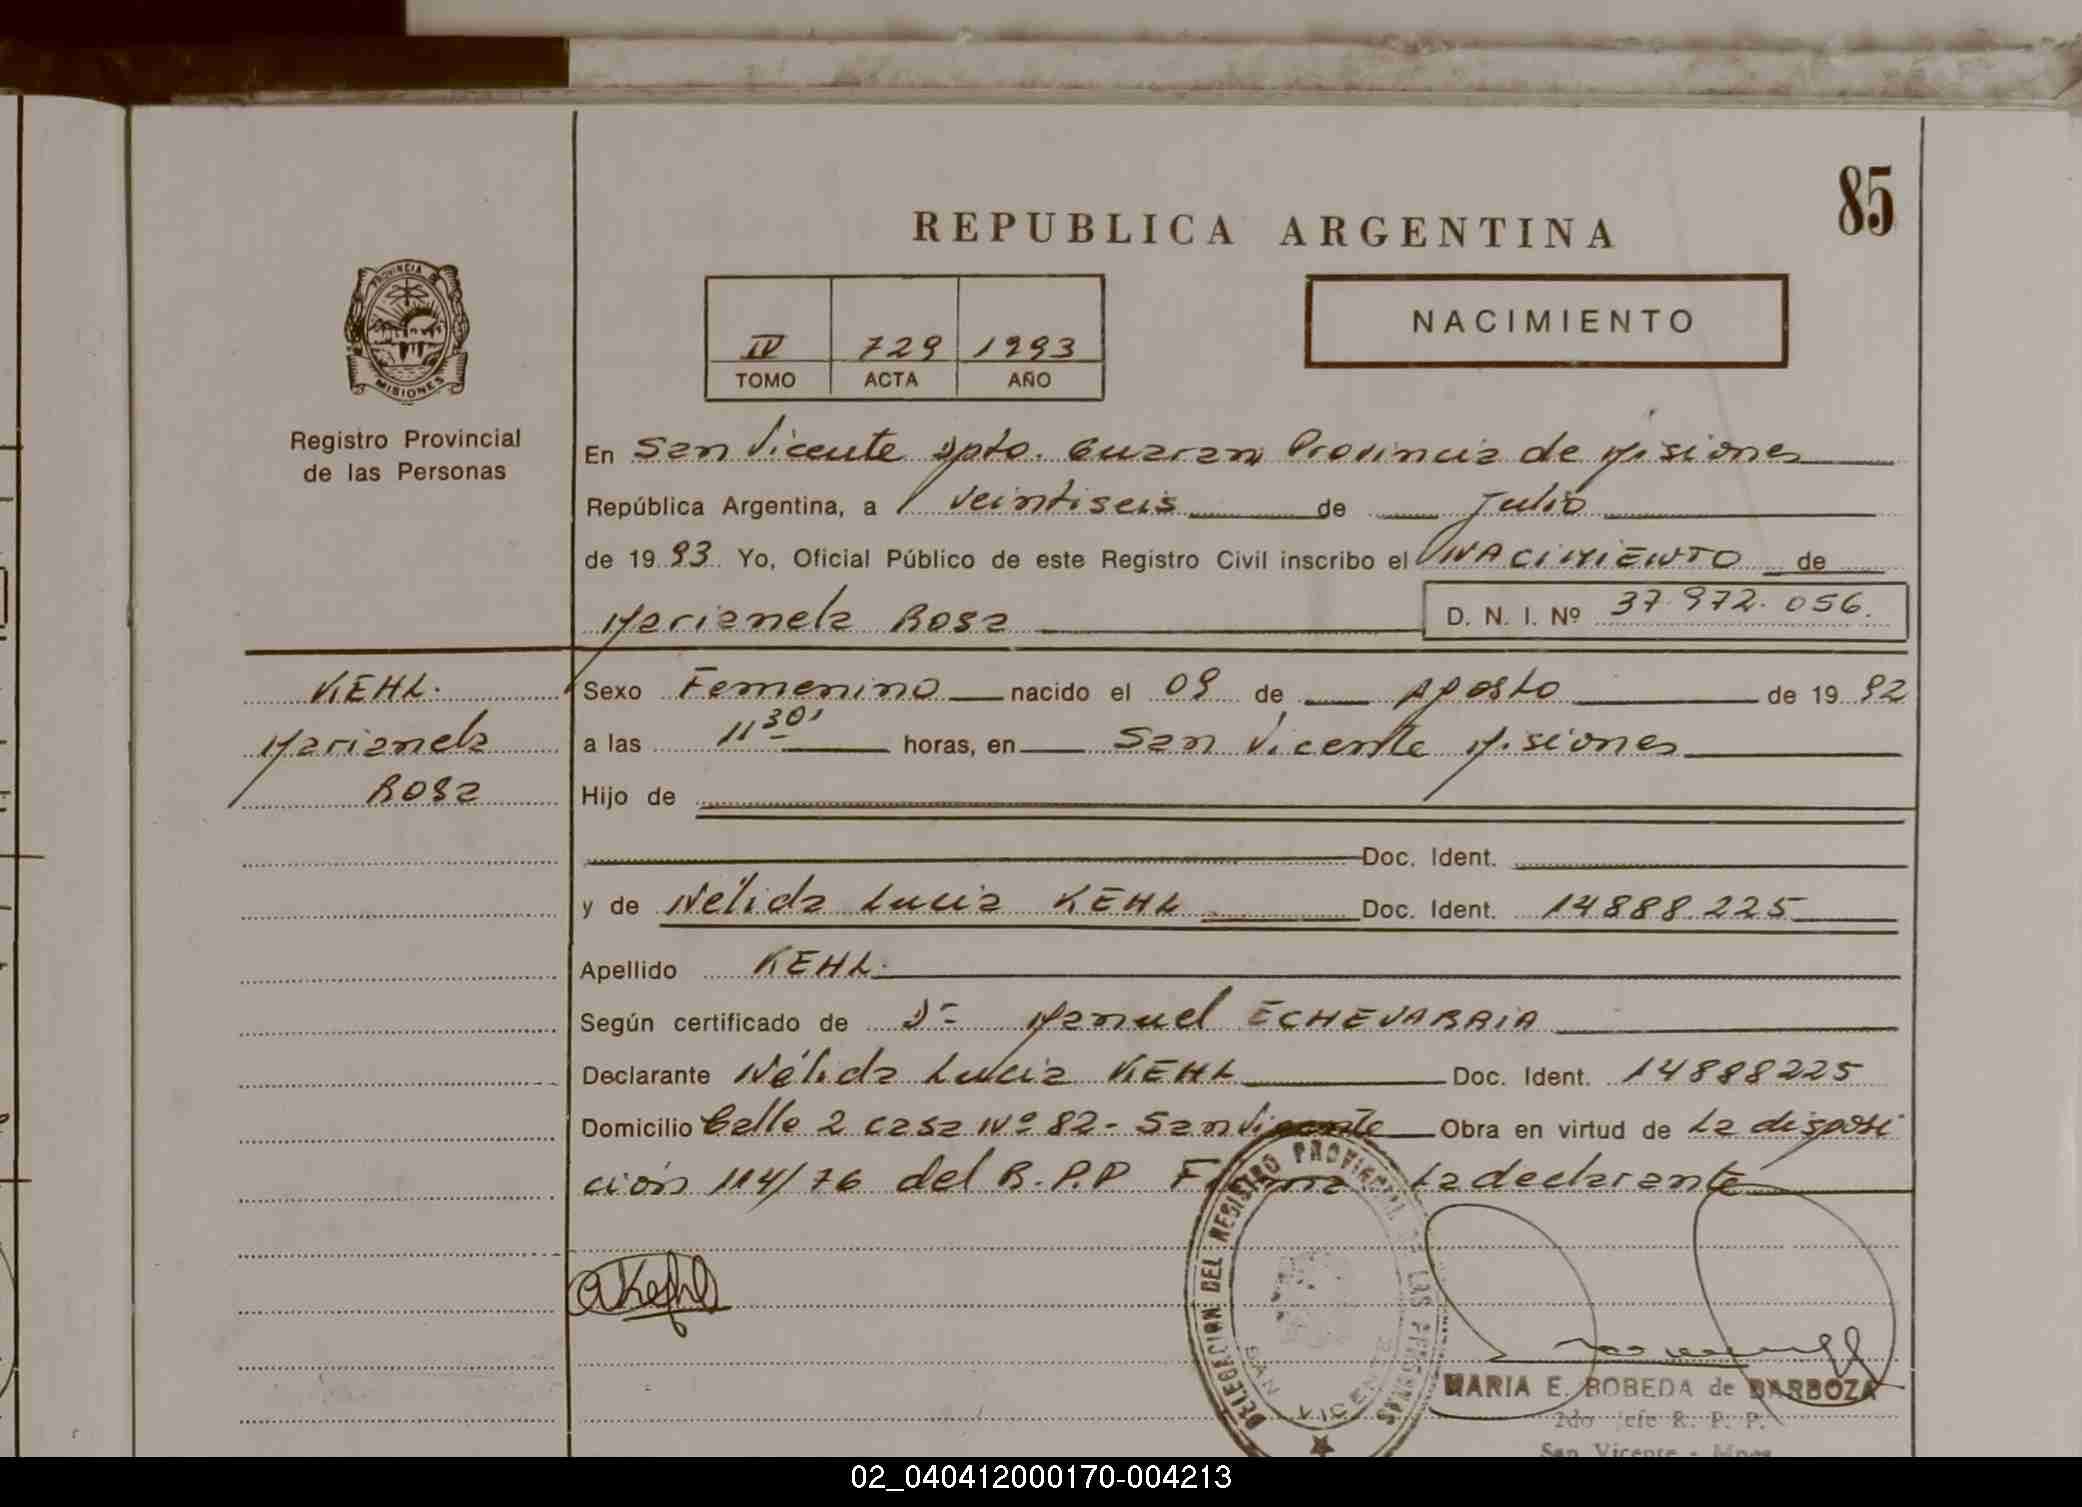 85
REPUBLICA ARGENTINA
PROVINCIA DE
MISIONES
Registro Provincial
de las Personas
IV 729 1993
TOMO ACTA AÑO
NACIMIENTO
En San Vicente Dpto. Guarani Provincia de Misiones
República Argentina, a Veintiseis de Julio
de 1993 Yo, Oficial Público de este Registro Civil inscribo el NACIMIENTO de
Marianela Rosa D. N. I. Nº 37.972.056.
KEHL.
Marianela
Rosa
Sexo Femenino nacido el 09 de Agosto de 1992
a las 11 30' horas, en San Vicente Misiones
Hijo de
Doc. Ident.
y de Nélida Lucia KEHL Doc. Ident. 14888.225
Apellido KEHL.
Según certificado de Dr Manuel ECHEVARRIA
Declarante Nélida Lucia KEHL Doc. Ident. 14888225
Domicilio Calle 2 casa Nº 82- San Vicente Obra en virtud de La disposi
ción 114/76 del R.P.P Firma La declarante
Kehl
DELEGACION DEL REGISTRO PROVINCIAL DE LAS PERSONAS
SAN VICENTE
MARIA E. BOBEDA de BARBOZA
2do Jefe R. P. P.
San Vicente - Mnes
02_040412000170-004213